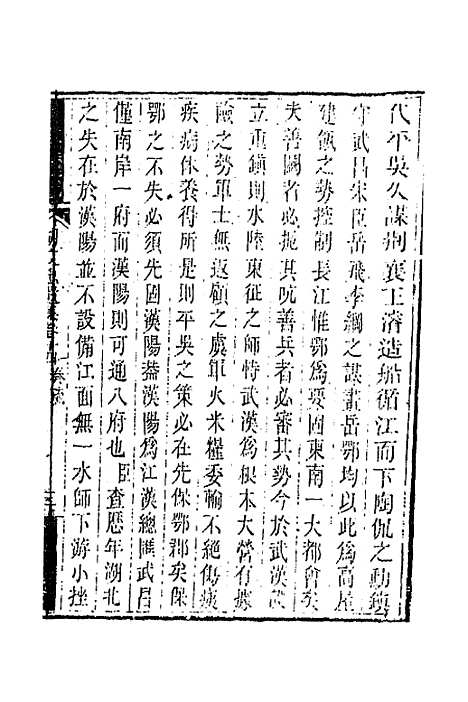 代平吳久謀荊襄王濬造船循江而下陶侃之勳鎮
守武昌宋臣岳飛李綱之謀畫岳鄂均以此爲高屋
建瓴之勢控制長江惟鄂爲要固東南一大都會矣
夫善鬭者必扼其吭善兵者必審其勢今於武漢設
立重鎮則水陸東征之師恃武漢爲根本大營有據
險之勢軍士無返顧之虞軍火米糧委輸不絕傷痍
疾病休養得所是則平吳之策必在先保鄂郡矣保
鄂之不失必須先固漢陽葢漢陽爲江漢總匯武昌
僅南岸一府而漢陽則可通八府也臣查歷年湖北
之失在於漢陽並不設備江面無一水師下游小挫